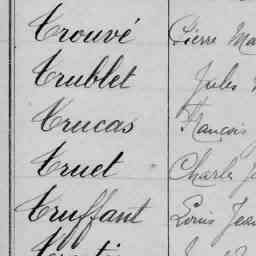 Trouvé Pierre Ma
Trublet Jules
Trucas François
Truet Charles
Truffant Louis Jean